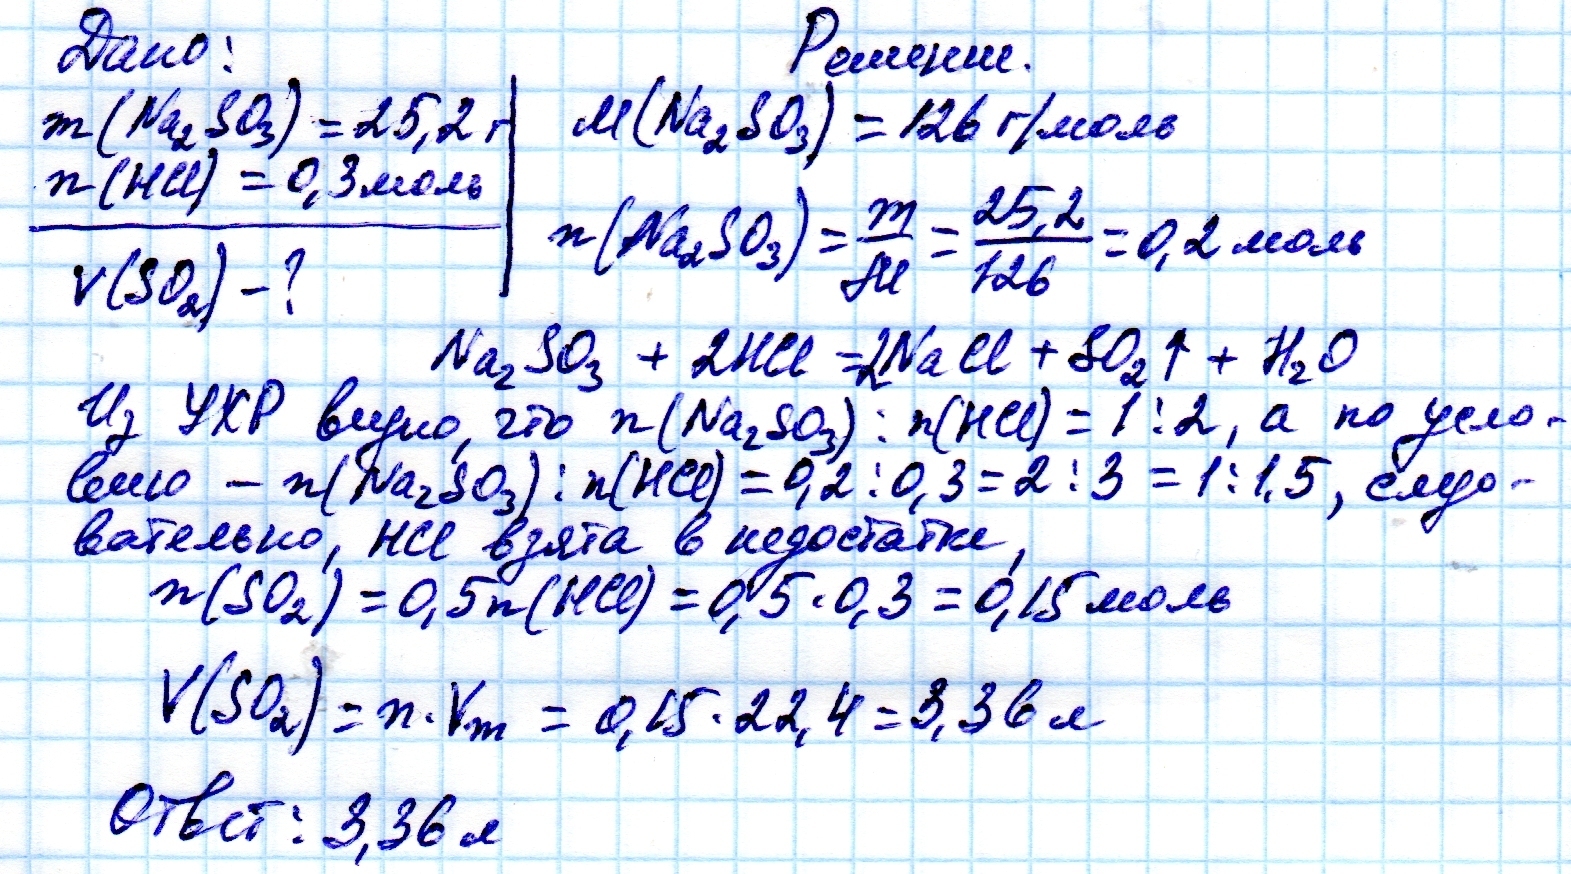 Дано:
Решение.
m(Na₂SO₃) = 25,2 г
n(HCl) = 0,3 моль
V(SO₂) - ?
M(Na₂SO₃) = 126 г/моль
n(Na₂SO₃) = m/M = 25,2/126 = 0,2 моль
Na₂SO₃ + 2HCl = 2NaCl + SO₂↑ + H₂O
Из УХР видно, что n(Na₂SO₃) : n(HCl) = 1 : 2, а по усло-
вию – n(Na₂SO₃) : n(HCl) = 0,2 : 0,3 = 2 : 3 = 1 : 1,5, следо-
вательно, HCl взята в недостатке,
n(SO₂) = 0,5n(HCl) = 0,5 · 0,3 = 0,15 моль
V(SO₂) = n · Vm = 0,15 · 22,4 = 3,36 л
Ответ: 3,36 л